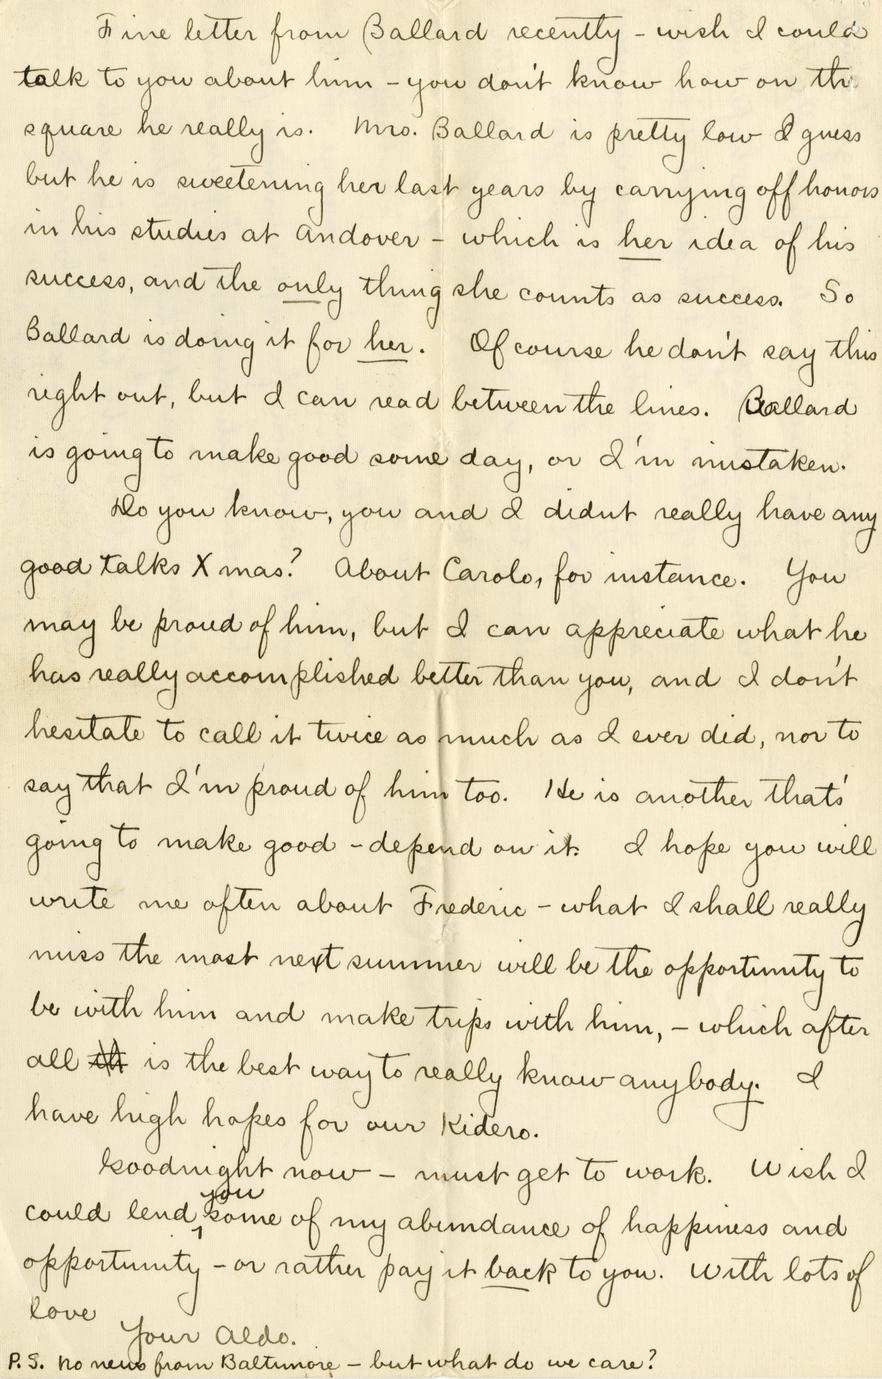 Fine letter from Ballard recently - wish I could
talk to you about him - you don't know how on the
square he really is. Mrs. Ballard is pretty low I guess
but he is sweetening her last years by carrying off honors
in his studies at Andover - which is her idea of his
success, and the only thing she counts as success. So
Ballard is doing it for her. Of course he don't say this
right out, but I can read between the lines. Ballard
is going to make good some day, or I'm mistaken.
Do you know, you and I didnt really have any
good talks Xmas? About Carolo, for instance. You
may be proud of him, but I can appreciate what he
has really accomplished better than you, and I don't
hesitate to call it twice as much as I ever did, nor to
say that I'm proud of him too. He is another that's
going to make good - depend on it. I hope you will
write me often about Frederic - what I shall really
miss the most next summer will be the opportunity to
be with him and make trips with him, - which after
all is the best way to really know anybody. I
have high hopes for our Kidero.
Goodnight now - must get to work. Wish I
could lend you some of my abundance of happiness and
opportunity - or rather pay it back to you. With lots of
love
Your Aldo.
P.S. No news from Baltimore - but what do we care?